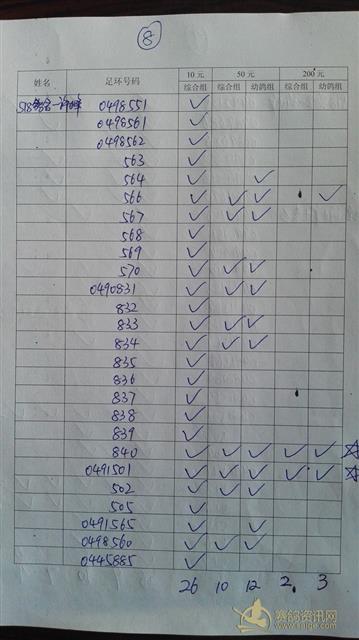 ⑧
姓名 足环号码 10 元 50 元 200 元
综合组 综合组 幼鸽组 综合组 幼鸽组
0498551 ✓
0498561 ✓
0498562 ✓
563 ✓
564 ✓ ✓
566 ✓ ✓ ✓ ✓
567 ✓ ✓ ✓
568 ✓
569 ✓
570 ✓ ✓ ✓
0490831 ✓ ✓ ✓
832 ✓
833 ✓ ✓ ✓
834 ✓ ✓ ✓
835 ✓
836 ✓
837 ✓
838 ✓
839 ✓
840 ✓ ✓ ✓ ✓ ✓ ☆
0491501 ✓ ✓ ✓ ✓ ✓ ☆
502 ✓ ✓ ✓
505 ✓
0491565 ✓ ✓
0498560 ✓ ✓ ✓
0445885 ✓
26 10 12 2 3
赛鸽资讯网